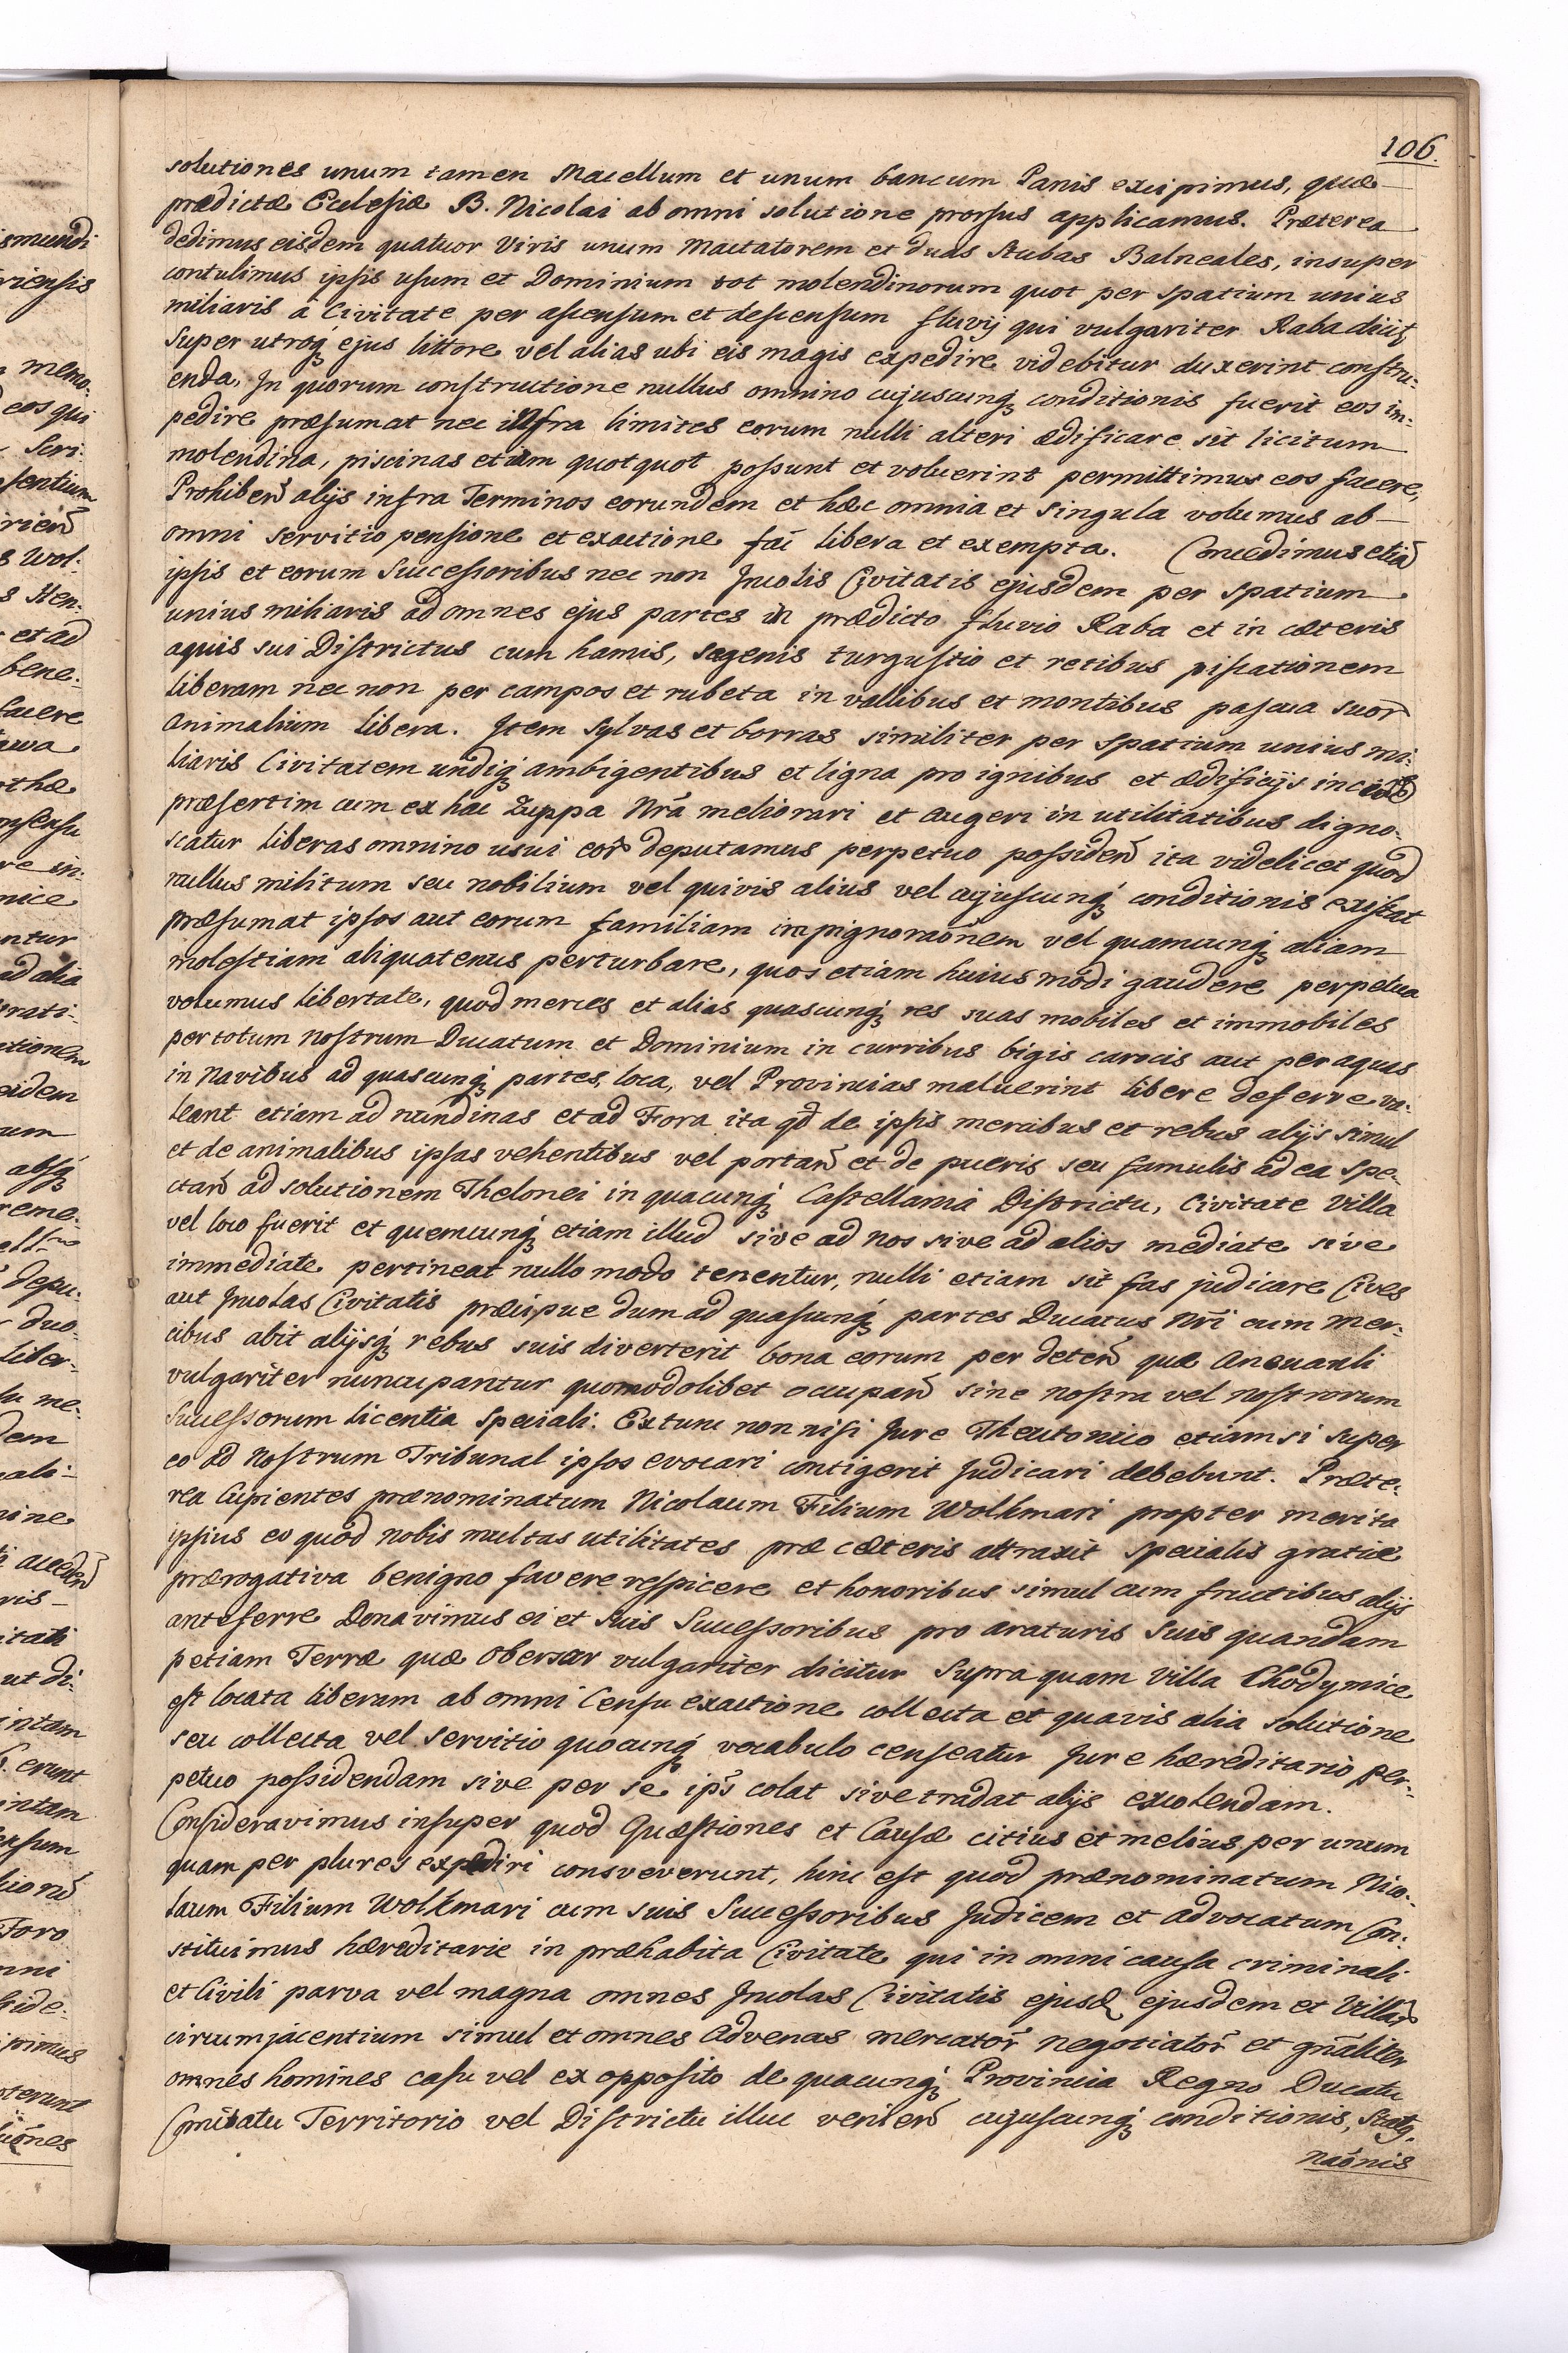 106.
solutiones unum tamen Macellum et unum bancum Panis excipimus, quæ
prædictæ Ecclesiæ B. Nicolai ab omni solutione prorsus applicamus. Præterea
dedimus eisdem quatuor Viris unum Mactatorem et duas Stubas Balneales, insuper
contulimus ipsis usum et Dominium tot molendinorum quot per spatium unius
miliaris á Civitate per ascensum et descensum fluvij qui vulgariter Raba dicit̃
Super utroq́ ejus littore vel alias ubi eis magis expedire videbitur duxerint constru:
enda. In quorum constructione nullus omnino cujuscunq́ conditionis fuerit eos im:
pedire præsumat nec infra limites eorum nulli alteri ædificare sit licitum
molendina, piscinas etiam quotquot possunt et voluerint permittimus eos facere,
Prohibeñ alijs infra Terminos eorundem et hæc omnia et singula volumus ab
omni servitio pensione et exactione fáí libera et exempta. Concedimus etiã
ipsis et eorum Successoribus nec non Incolis Civitatis ejusdem per spatium
unius miliaris ad omnes ejus partes in prædicto fluvio Raba et in cæteris
aquis sui Districtus cum hamis, sagenis turgustio et retibus piscationem
liberam nec non per campos et rubeta in vallibus et montibus pascua suoꝝ
animalium libera. Item sylvas et borras similiter per spatium unius mi:
liaris Civitatem undiq́ ambigentibus et ligna pro ignibus et ædificijs incidẽ
præsertim cum ex hac Zuppa Nrã meliorari et augeri in utilitatibus digno:
scatur liberas omnino usui eoꝝ deputamus perpetuo possideñ ita videlicet quod
nullus militum seu nobilium vel quivis alius vel cujuscunq́ conditionis existat
præsumat ipsos aut eorum familiam impignorãonem vel quamcunq́ aliam
molestiam aliquatenus perturbare, quos etiam huiusmodi gaudere perpetua
volumus libertate, quod merces et alias quascunq́ res suas mobiles et immobiles
per totum nostrum Ducatum et Dominium in curribus bigis carucis aut per aquas
in Navibus ad quascunq́ partes, loca, vel Provincias maluerint libere deferre va:
leant etiam ad nundinas et ad Fora ita qd̃ de ipsis mercibus et rebus alijs simul
et de animalibus ipsas vehentibus vel portañ et de pueris seu famulis ad ea spe:
ctañ ad solutionem Thelonei in quacunq́ Castellania Districtu, Civitate Villa
vel loco fuerit et quemcunq́ etiam illud sive ad nos sive ad alios mediate sive
immediate pertineat nullo modo tenentur, nulli etiam sit fas judicare Cives
aut Incolas Civitatis præcipue dum ad quascunq́ partes Ducatus Nrĩ cum Mer:
cibus abit alijsq́ rebus suis diverterit bona eorum per deteñ quæ
vulgariter nuncupantur quomodolibet occupañ sine nostra vel nostrorum
Successorum licentia speciali. Ex tunc non nisi Jure Theutonico etiamsi super
eo ad Nostrum Tribunal ipsos evocari contigerit Judicari debebunt. Præte:
rea Cupientes prænominatum Nicolaum Filium Wolkmari propter merita
ipsius eo quod nobis multas utilitates præ cæteris attraxit specialis gratiæ
prærogativa benigno favere respicere et honoribus simul cum fructibus alijs
anteferre Donavimus ei et suis Successoribus pro araturis suis quandam
petiam Terræ quæ Obersar vulgariter dicitur Supra quam Villa Chodynice
est locata liberam ab omni Censu exactione collecta et quavis alia solutione
seu collecta vel servitio quocunq́ vocabulo censeatur Jure hæreditario per:
petuo possidendam sive per se ips̃ colat sive tradat alijs excolendam.
Consideravimus insuper quod Quæstiones et Causæ citius et melius per unum
quam per plures expediri consveverunt, hinc est quod prænominatum Nico:
laum Filium Wolkmari cum suis Successoribus Judicem et Advocatum Con:
stituimus hæreditarie in præhabita Civitate qui in omni causa criminali
et Civili parva vel magna omnes Incolas Civitatis ejusd ejusdem et Villaꝝ
circumjacentium simul et omnes Advenas mercatoꝝ negotiatoꝝ et gnãliter
omnes homines casu vel ex opposito de quacunq́ Provincia Regno Ducatu
Comitatu Territorio vel Districtu illuc venieñ cujuscunq́ conditionis, Statꝰ
Naõnis